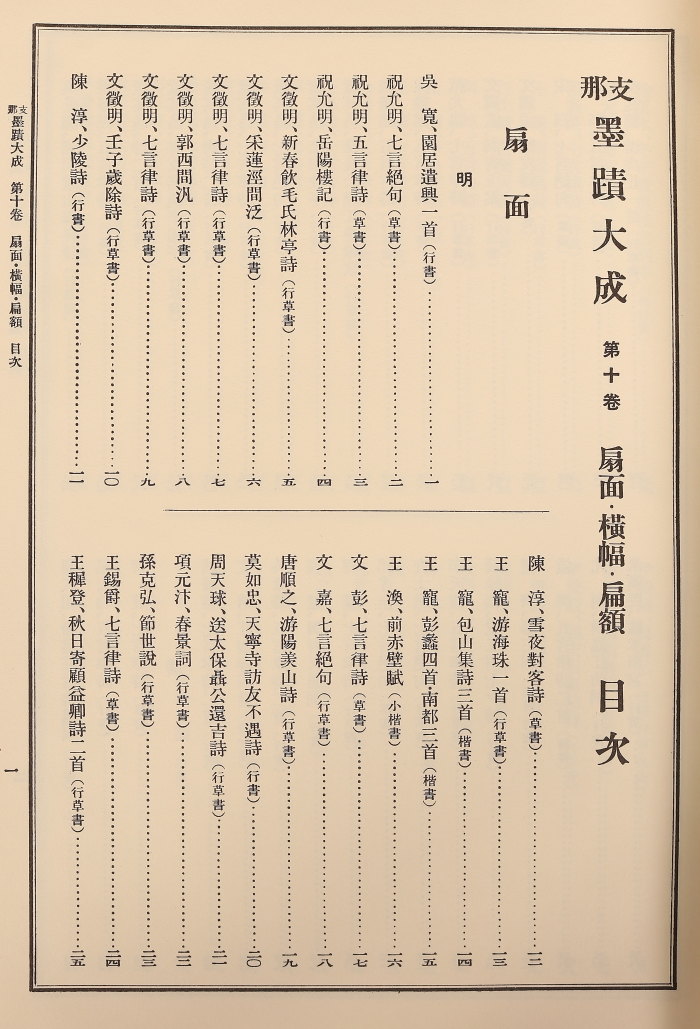 支那墨蹟大成 第十卷 扇面·橫幅·扁額 目次
扇面
明
吳　寬、園居遣興一首（行書）……一
祝允明、七言絕句（草書）……二
祝允明、五言律詩（草書）……三
祝允明、岳陽樓記（行書）……四
文徵明、新春飲毛氏林亭詩（行草書）……五
文徵明、采蓮涇間泛（行草書）……六
文徵明、七言律詩（行草書）……七
文徵明、郭西間汎（行草書）……八
文徵明、七言律詩（行草書）……九
文徵明、壬子歲除詩（行草書）……一〇
陳　淳、少陵詩（行書）……一一
陳　淳、雪夜對客詩（草書）……一二
王　寵、游海珠一首（行草書）……一三
王　寵、包山集詩三首（楷書）……一四
王　寵、彭蠡四首·南都三首（楷書）……一五
王　渙、前赤壁賦（小楷書）……一六
文　彭、七言律詩（草書）……一七
文　嘉、七言絕句（行草書）……一八
唐順之、游陽羨山詩（行草書）……一九
莫如忠、天寧寺訪友不遇詩（行書）……二〇
周天球、送太保聶公還吉詩（行草書）……二一
項元汴、春景詞（行草書）……二二
孫克弘、節世說（行草書）……二三
王錫爵、七言律詩（草書）……二四
王穉登、秋日寄顧益卿詩二首（行草書）……二五
支那墨蹟大成 第十卷 扇面·橫幅·扁額 目次
一